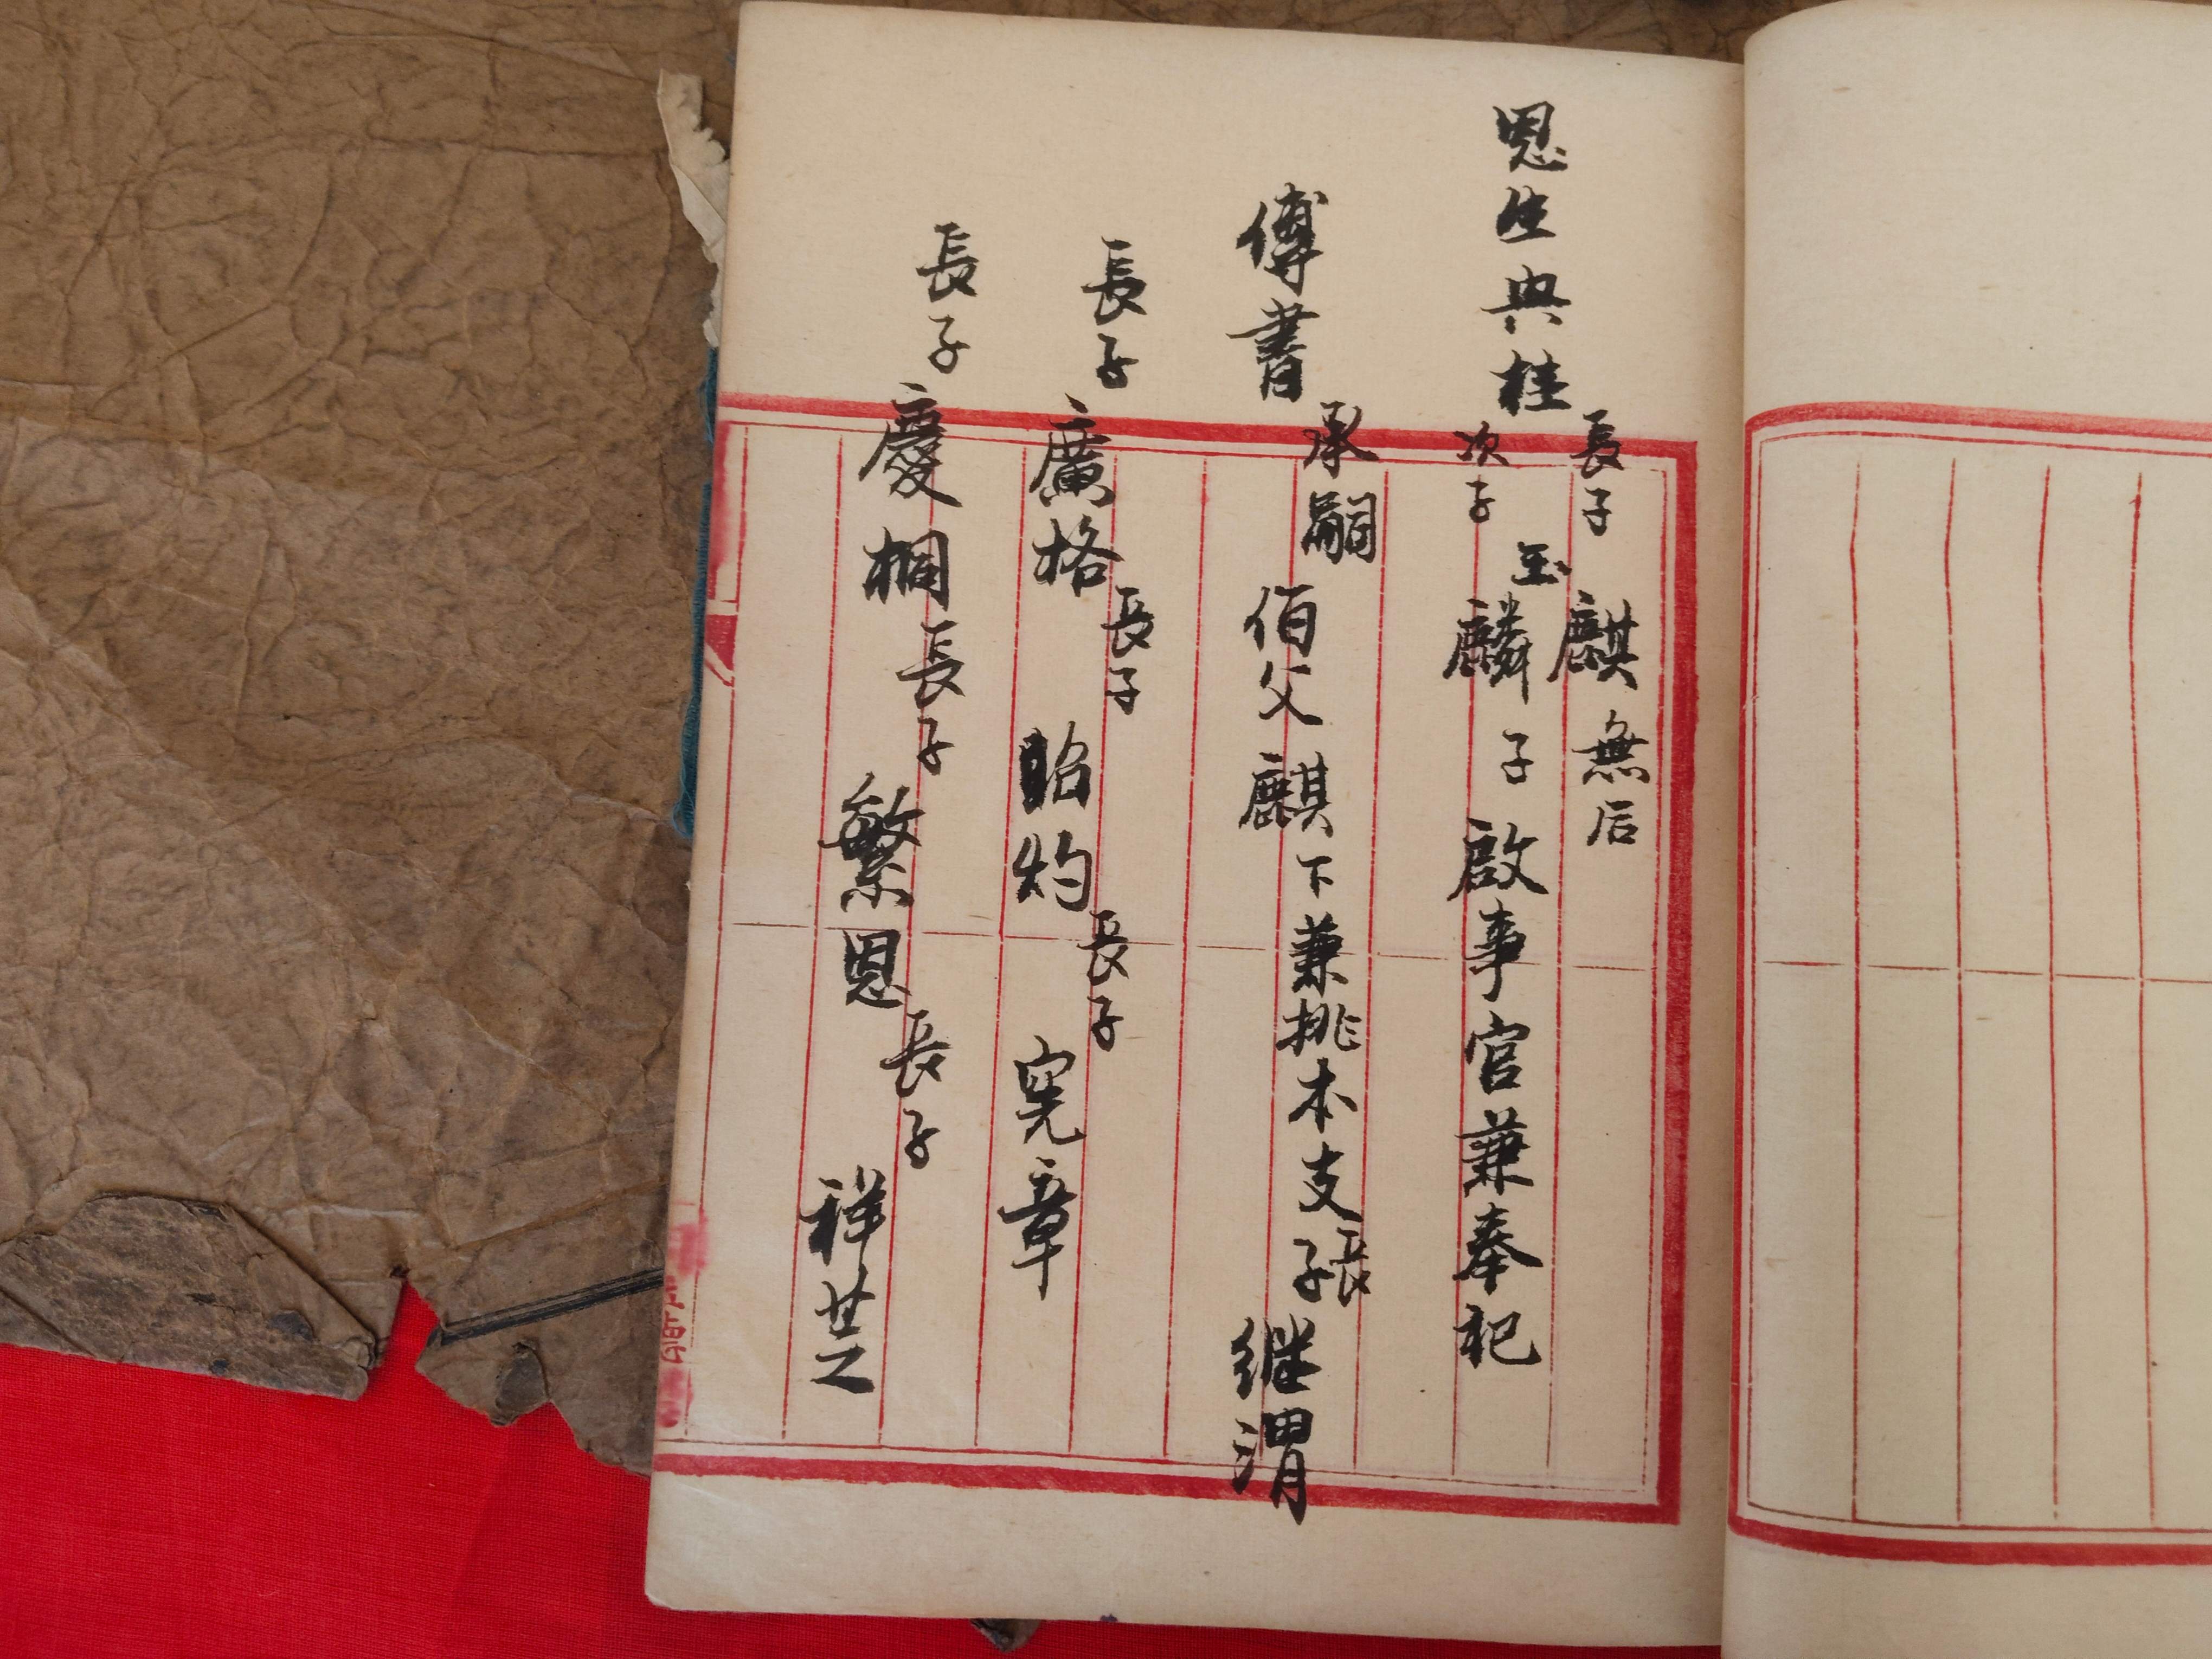 恩生典桂
長子 麒 無后
次子 玉麟 子 啟事官兼奉祀
傅書 承嗣 伯父麒下兼挑本支 長子 继渭
長子 廣格 長子 昭灼 長子 憲章
長子 慶桐 長子 繁恩 長子 祥芝